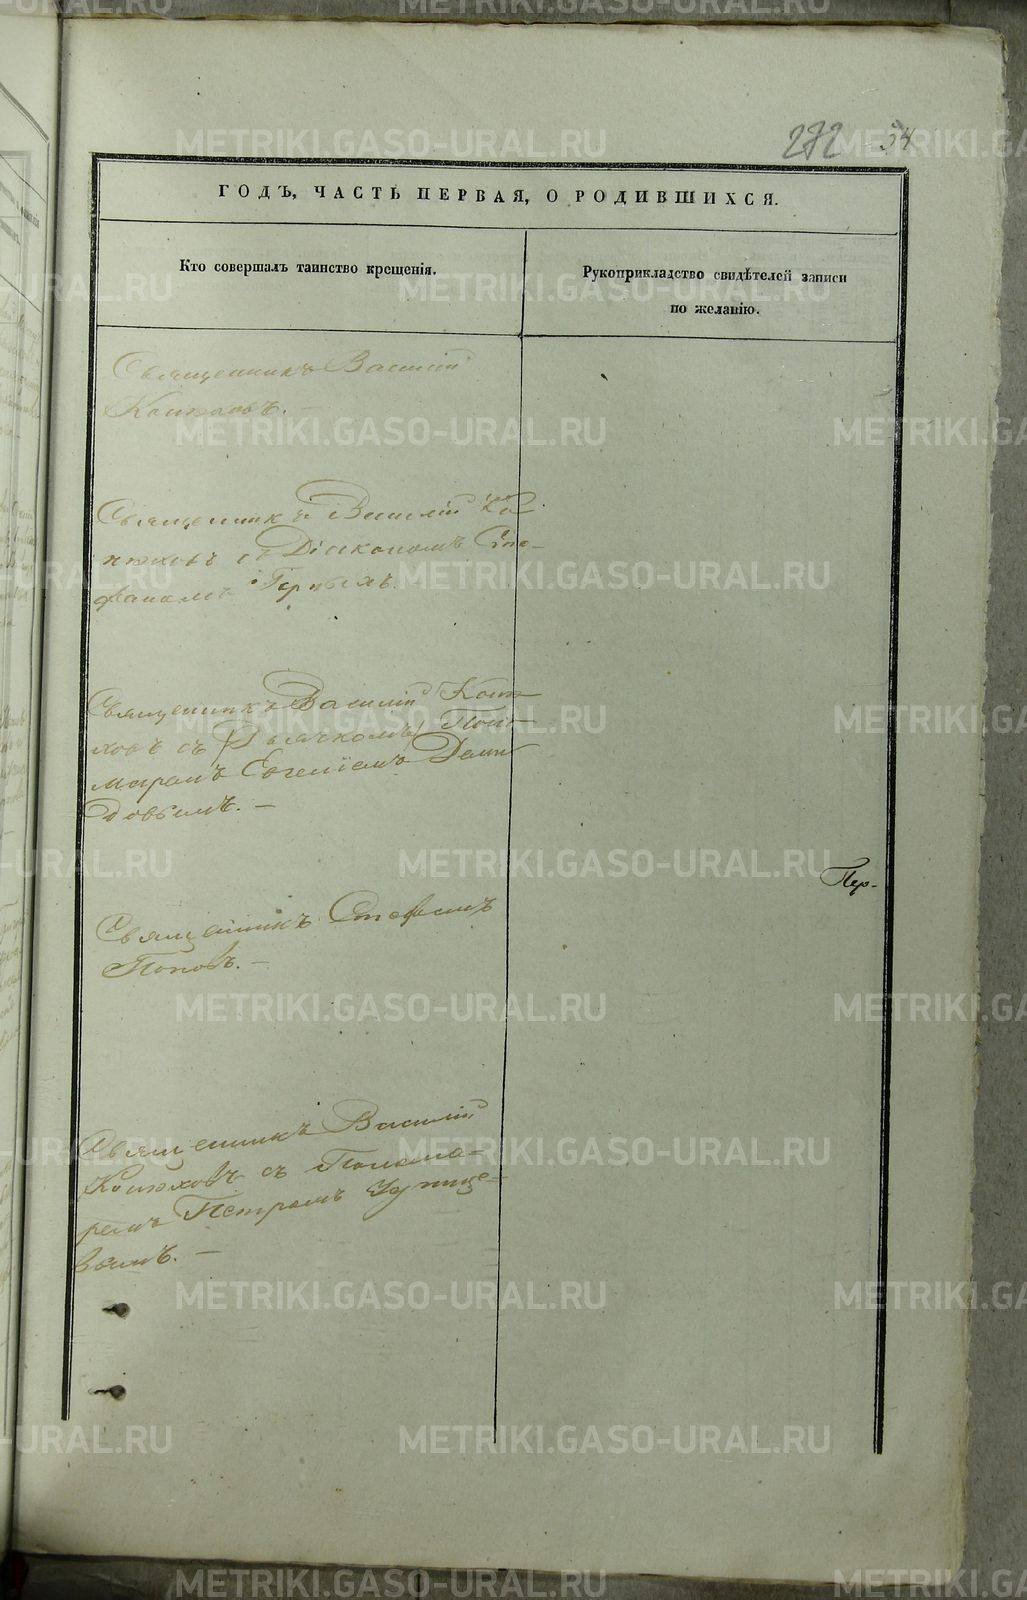 272 54
ГОДЪ, ЧАСТЬ ПЕРВАЯ, О РОДИВШИХСЯ.
Кто совершалъ таинство крещенія.
Рукоприкладство свидѣтелей записи
по желанію.
Священникъ Василій
Конюховъ. —
Священникъ Василій Ко-
нюховъ съ Діакономъ Сте-
фаномъ
Священникъ Василій Коню-
ховъ съ Дьячкомъ
Евгеніемъ
довымъ. —
Пер-
Священникъ Стефанъ
Поповъ. —
Священникъ Василій
Конюховъ съ Понома-
ремъ Петромъ
вымъ. —
METRIKI.GASO-URAL.RU